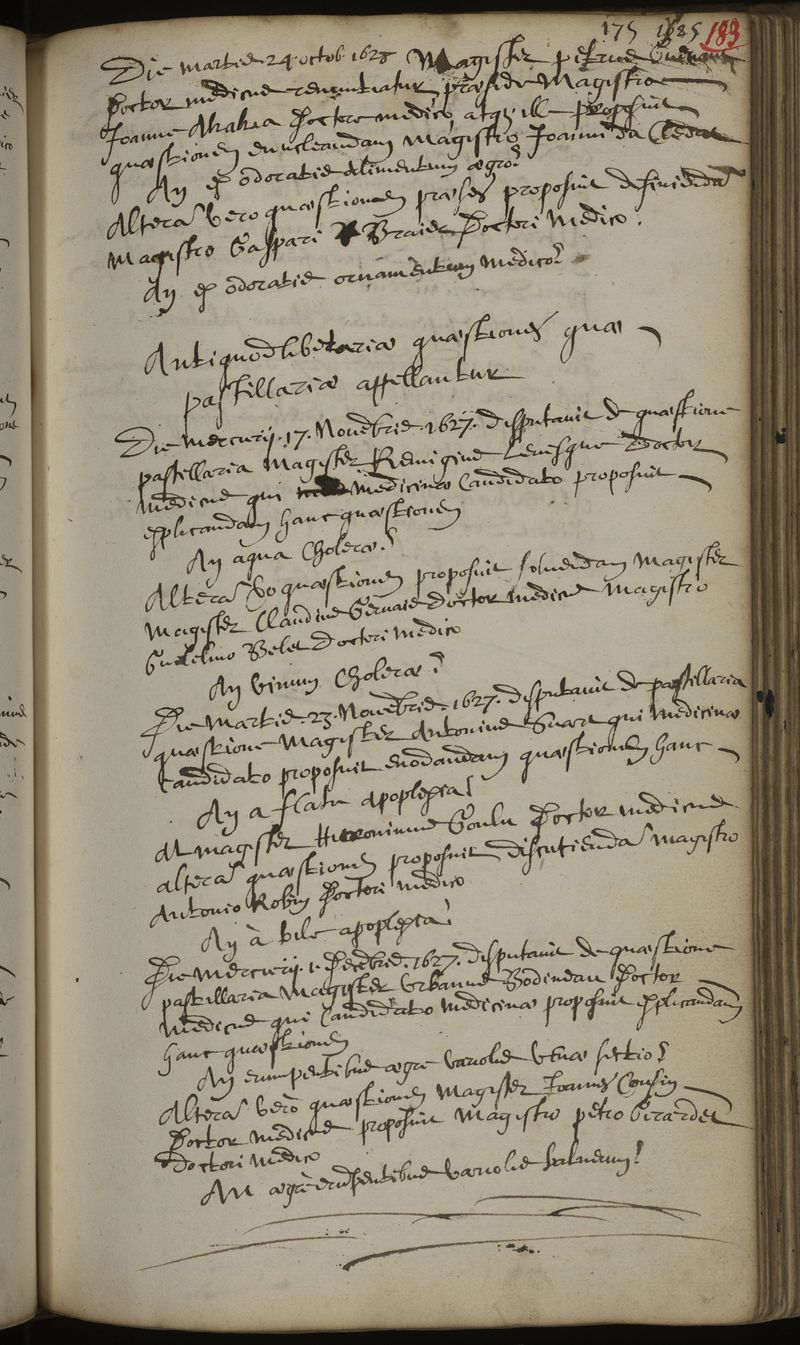 175 1625 183
Die Martis 24 octob. 1628 Magister petrus
Doctor medicus renuntiatur, præside Magistro
Joanne Akakia Doctore medico, atque ille proposuit
quæstionem enucleandam Magistro Joanni da
An ex odoratis alimentum ægro?
Alterã vero quæstionem præses proposuit definiendã
Magistro Gaspari Brayer Doctori Medico.
An ex odoratis ornamentum medico?
Antiquodlibetariæ quæstiones quæ
pastillariæ appellantur
Die Mercurij .17. Novẽbris .1627. disputavit de quæstione
pastillaria Magister Remigius Levesque Doctor
medicus qui medicinæ Candidato proposuit
explicandam hanc quæstionem
An aqua Choleræ?
Alterã vo quæstionem proposuit solvendam Magister
Magister Claudius Gervais doctor medicus Magistro
Guilelmo Belet Doctori medico
An vinum Choleræ?
Die Martis .23. Novẽbris .1627. disputavit de pastillaria
quæstione Magister Antonius qui medicinæ
Candidato proposuit enodandam quæstionem hanc
An a flatu apoplexia?
At magister Hieronimus Goulu Doctor medicus
alterã quæstionem proposuit discutiendã Magistro
Antonio Robin Doctori medico
An à bile apoplexia?
Die Mercurij .1. Decẽbris .1627. disputavit de quæstione
pastillaria Magister Urbanus Bodineau Doctor
medicus qui Candidato medicinæ proposuit explicandam
hanc quæstionem
An erumpentibus ægre variolis venæ sectio?
Alterã verò quæstionem Magister Joannes Cousin
Doctor medicus proposuit Magistro petro Girardet
doctori medico
An ægrè erũpentibus variolis balneum?